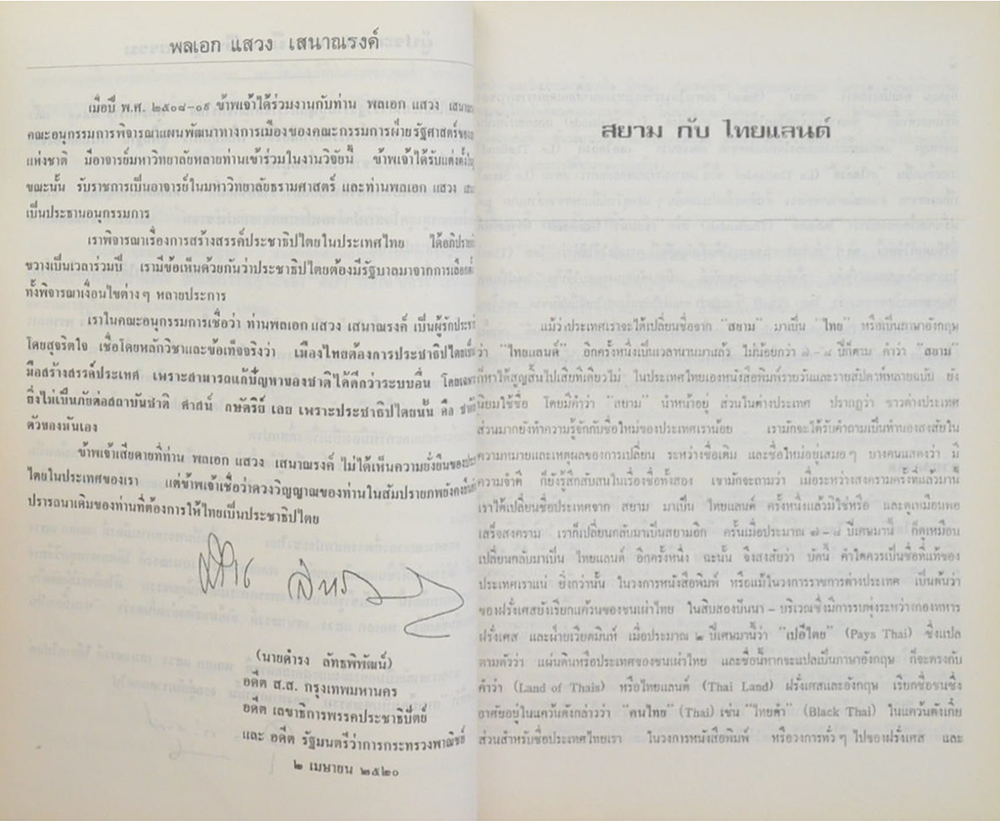 พลเอก แสวง เสนาณรงค์
เมื่อปี พ.ศ. ๒๕๐๘-๐๙ ข้าพเจ้าได้ร่วมงานกับท่าน พลเอก แสวง
คณะอนุกรรมการพิจารณาแผนพัฒนาทางการเมืองของคณะกรรมการฝ่ายรัฐศาสตร์ของ
แห่งชาติ มีอาจารย์มหาวิทยาลัยหลายท่านเข้าร่วมในงานวิจัยนี้ ข้าพเจ้าได้รับแต่งตั้ง
ขณะนั้น รับราชการเป็นอาจารย์ในมหาวิทยาลัยธรรมศาสตร์ และท่านพลเอก แสวง
เป็นประธานอนุกรรมการ
เราพิจารณาเรื่องการสร้างสรรค์ประชาธิปไตยในประเทศไทย ได้อภิปราย
ขวางเป็นเวลาร่วมปี เรามีข้อเห็นด้วยกันว่าประชาธิปไตยต้องมีรัฐบาลมาจากการเลือกตั้ง
ทั้งพิจารณาเงื่อนไขต่างๆ หลายประการ
เราในคณะอนุกรรมการเชื่อว่า ท่านพลเอก แสวง เสนาณรงค์ เป็นผู้รักประชา
โดยสุจริตใจ เชื่อโดยหลักวิชาและข้อเท็จจริงว่า เมืองไทยต้องการประชาธิปไตย
มือสร้างสรรค์ประเทศ เพราะสามารถแก้ปัญหาของชาติได้ดีกว่าระบบอื่น โดยเฉพาะ
ยิ่งไม่เป็นภัยต่อสถาบันชาติ ศาสน์ กษัตริย์ เลย เพราะประชาธิปไตยนั้น คือ
ตัวของมันเอง
ข้าพเจ้าเสียดายที่ท่าน พลเอก แสวง เสนาณรงค์ ไม่ได้เห็นความยั่งยืนของ
ไตยในประเทศของเรา แต่ข้าพเจ้าเชื่อว่าดวงวิญญาณของท่านในสัมปรายภพยังคง
ปรารถนาเดิมของท่านที่ต้องการให้ไทยเป็นประชาธิปไตย
(นายดำรง ลัทธพิพัฒน์)
อดีต ส.ส. กรุงเทพมหานคร
อดีต เลขาธิการพรรคประชาธิปัตย์
และ อดีต รัฐมนตรีว่าการกระทรวงพาณิชย์
๒ เมษายน ๒๕๒๐
สยาม กับ ไทยแลนด์
แม้ว่าประเทศเราจะได้เปลี่ยนชื่อจาก "สยาม" มาเป็น "ไทย" หรือเป็นภาษาอังกฤษ
ว่า "ไทยแลนด์" อีกครั้งหนึ่งเป็นเวลานานมาแล้ว ไม่น้อยกว่า ๗-๘ ปีก็ตาม คำว่า "สยาม"
ก็หาได้สูญสิ้นไปเสียทีเดียวไม่ ในประเทศไทยเองหนังสือพิมพ์รายวันและรายสัปดาห์หลายฉบับ ยัง
นิยมใช้ชื่อ โดยมีคำว่า "สยาม" นำหน้าอยู่ ส่วนในต่างประเทศ ปรากฏว่า ชาวต่างประเทศ
ส่วนมากยังทำความรู้จักกับชื่อใหม่ของประเทศเราน้อย เรามักจะได้รับคำถามเป็นทำนองสงสัยใน
ความหมายและเหตุผลของการเปลี่ยน ระหว่างชื่อเดิม และชื่อใหม่อยู่เสมอๆ บางคนแสดงว่า มี
ความจำดี ก็ยังรู้สึกสับสนในเรื่องชื่อทั้งสอง เขามักจะถามว่า เมื่อระหว่างสงครามครั้งที่แล้วมานี้
เราได้เปลี่ยนชื่อประเทศจาก สยาม มาเป็น ไทยแลนด์ ครั้งหนึ่งแล้วมิใช่หรือ และดูเหมือนพอ
เสร็จสงคราม เราก็เปลี่ยนกลับมาเป็นสยามอีก ครั้นเมื่อประมาณ ๗-๘ ปีเศษมานี้ ก็ดูเหมือน
เปลี่ยนกลับมาเป็น ไทยแลนด์ อีกครั้งหนึ่ง ฉะนั้น จึงสงสัยว่า บัดนี้ คำใดควรเป็นชื่อที่แท้ของ
ประเทศเราแน่ ยิ่งกว่านั้น ในวงการหนังสือพิมพ์ หรือแม้ในวงการราชการต่างประเทศ เป็นต้นว่า
ของฝรั่งเศสยังเรียกแคว้นของชนเผ่าไทย ในสิบสองปันนา - บริเวณซึ่งมีการรบพุ่งระหว่างกองทหาร
ฝรั่งเศส และฝ่ายเวียดมินห์ เมื่อประมาณ ๒ ปีเศษมานี้ว่า "เปอีไตย" (Pays Thai) ซึ่งแปล
ตามตัวว่า แผ่นดินหรือประเทศของชนเผ่าไทย และชื่อนี้หากจะแปลเป็นภาษาอังกฤษ ก็จะตรงกับ
คำว่า (Land of Thais) หรือไทยแลนด์ (Thai Land) ฝรั่งเศสและอังกฤษ เรียกชื่อชนซึ่ง
อาศัยอยู่ในแคว้นดังกล่าวว่า "คนไทย" (Thai) เช่น "ไทยดำ" (Black Thai) ในแคว้นตังเกี๋ย
ส่วนสำหรับชื่อประเทศไทยเรา ในวงการหนังสือพิมพ์ หรือวงการทั่วๆ ไปของฝรั่งเศส และ